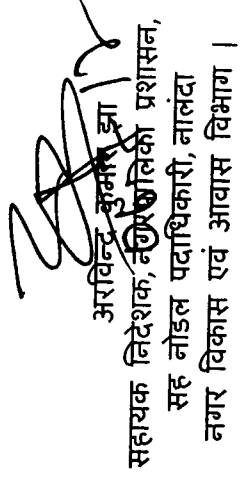 अरविन्द कुमार झा
सहायक निदेशक, नगरपालिका प्रशासन,
सह नोडल पदाधिकारी, नालंदा
नगर विकास एवं आवास विभाग |